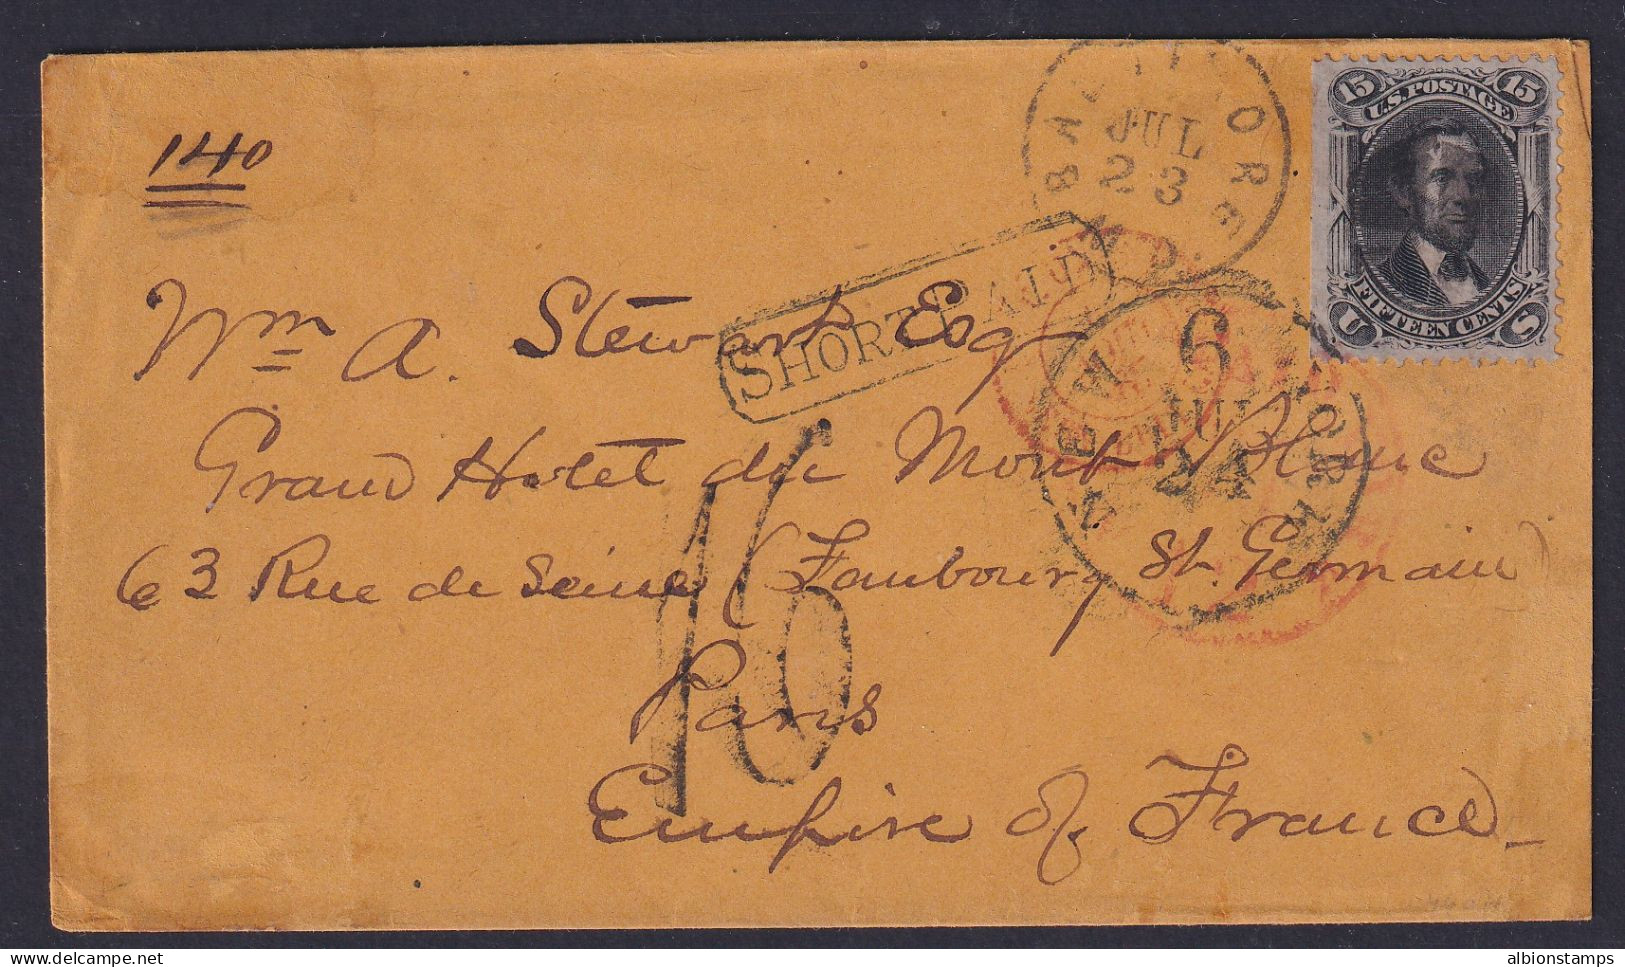 140
BALTIMORE MD
JUL
23
15 15
U.S. POSTAGE
FIFTEEN CENTS
U S
SHORT PAID
NEW YORK
6
JUL
24
16
Wm A. Stewart Esq
Grand Hotel du Mont Blanc
63 Rue de Seine (Faubourg St. Germain)
Paris
Empire of France
albionstamps